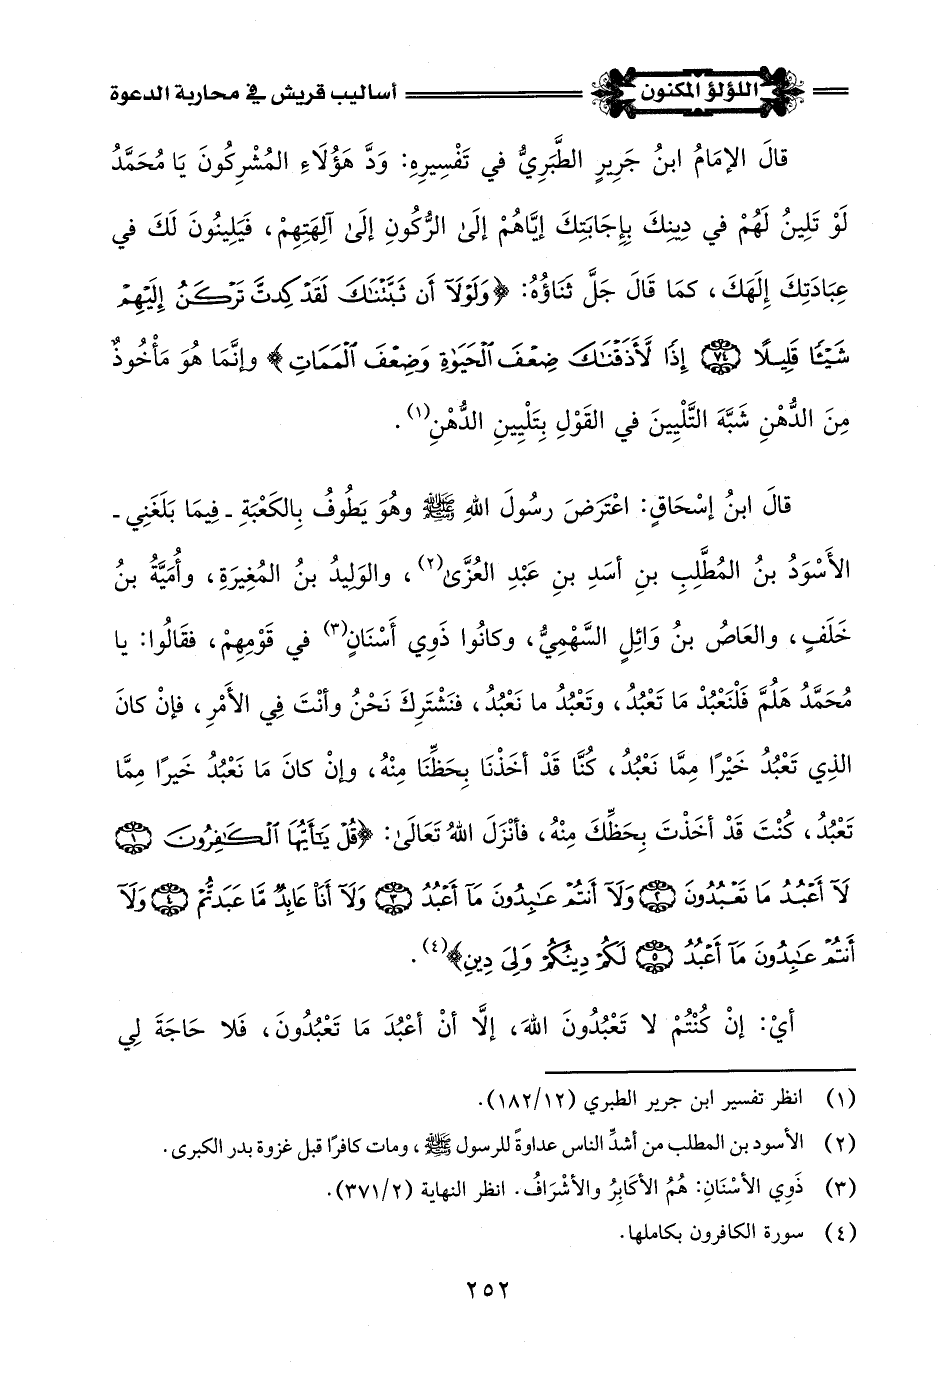 اللؤلؤ المكنون أساليب قريش في محاربة الدعوة
قالَ الإمَامُ ابنُ جَرِيرٍ الطَّبَرِيُّ في تَفْسِيرِهِ: وَدَّ هَؤُلَاءِ المُشْرِكُونَ يَا مُحَمَّدُ
لَوْ تَلِينُ لَهُمْ في دِينِكَ بِإِجَابَتِكَ إيَّاهُمْ إلَى الرُّكُونِ إلَى آلِهَتِهِمْ، فَيَلِينُونَ لَكَ في
عِبَادَتِكَ إلَهَكَ، كمَا قَالَ جَلَّ ثَنَاؤُهُ: ﴿وَلَوْلَآ أَن ثَبَّتْنَٰكَ لَقَدْ كِدتَّ تَرْكَنُ إِلَيْهِمْ
شَيْـًٔا قَلِيلًا ﴿٧٤﴾ إِذًا لَّأَذَقْنَٰكَ ضِعْفَ ٱلْحَيَوٰةِ وَضِعْفَ ٱلْمَمَاتِ﴾ وإنَّمَا هُوَ مَأْخُوذٌ
مِنَ الدُّهْنِ شَبَّهَ التَّلْيِينَ في القَوْلِ بِتَلْيِينِ الدُّهْنِ(١).
قالَ ابنُ إسْحَاقٍ: اعْتَرَضَ رسُولَ اللهِ ﷺ وهُوَ يَطُوفُ بِالكَعْبَةِ ـ فِيمَا بَلَغَنِي ـ
الأَسْوَدُ بنُ المُطَّلِبِ بنِ أسَدِ بنِ عَبْدِ العُزَّى(٢)، والوَلِيدُ بنُ المُغِيرَةِ، وأُمَيَّةُ بنُ
خَلَفٍ، والعَاصُ بنُ وَائِلٍ السَّهْمِيُّ، وكانُوا ذَوِي أَسْنَانٍ(٣) في قَوْمِهِمْ، فقَالُوا: يا
مُحَمَّدُ هَلُمَّ فَلْنَعْبُدْ مَا تَعْبُدُ، وتَعْبُدُ ما نَعْبُدُ، فنَشْتَرِكَ نَحْنُ وأنْتَ فِي الأَمْرِ، فإنْ كانَ
الذِي تَعْبُدُ خَيْرًا مِمَّا نَعْبُدُ، كُنَّا قَدْ أخَذْنَا بِحَظِّنَا مِنْهُ، وإنْ كانَ مَا نَعْبُدُ خَيرًا مِمَّا
تَعْبُدُ، كُنْتَ قَدْ أخَذْتَ بِحَظِّكَ مِنْهُ، فأنْزَلَ اللهُ تَعَالَى: ﴿قُلْ يَٰٓأَيُّهَا ٱلْكَٰفِرُونَ ﴿١﴾
لَآ أَعْبُدُ مَا تَعْبُدُونَ ﴿٢﴾ وَلَآ أَنتُمْ عَٰبِدُونَ مَآ أَعْبُدُ ﴿٣﴾ وَلَآ أَنَا۠ عَابِدٌ مَّا عَبَدتُّمْ ﴿٤﴾ وَلَآ
أَنتُمْ عَٰبِدُونَ مَآ أَعْبُدُ ﴿٥﴾ لَكُمْ دِينُكُمْ وَلِىَ دِينِ﴾(٤).
أيْ: إنْ كُنْتُمْ لا تَعْبُدُونَ اللهَ، إلَّا أنْ أعْبُدَ مَا تَعْبُدُونَ، فَلا حَاجَةَ لِي
(١) انظر تفسير ابن جرير الطبري (١٨٢/١٢).
(٢) الأسود بن المطلب من أشدِّ الناس عداوةً للرسول ﷺ، ومات كافرًا قبل غزوة بدر الكبرى.
(٣) ذَوِي الأسْنَانِ: هُمُ الأكَابِرُ والأشْرَافُ. انظر النهاية (٣٧١/٢).
(٤) سورة الكافرون بكاملها.
٢٥٢